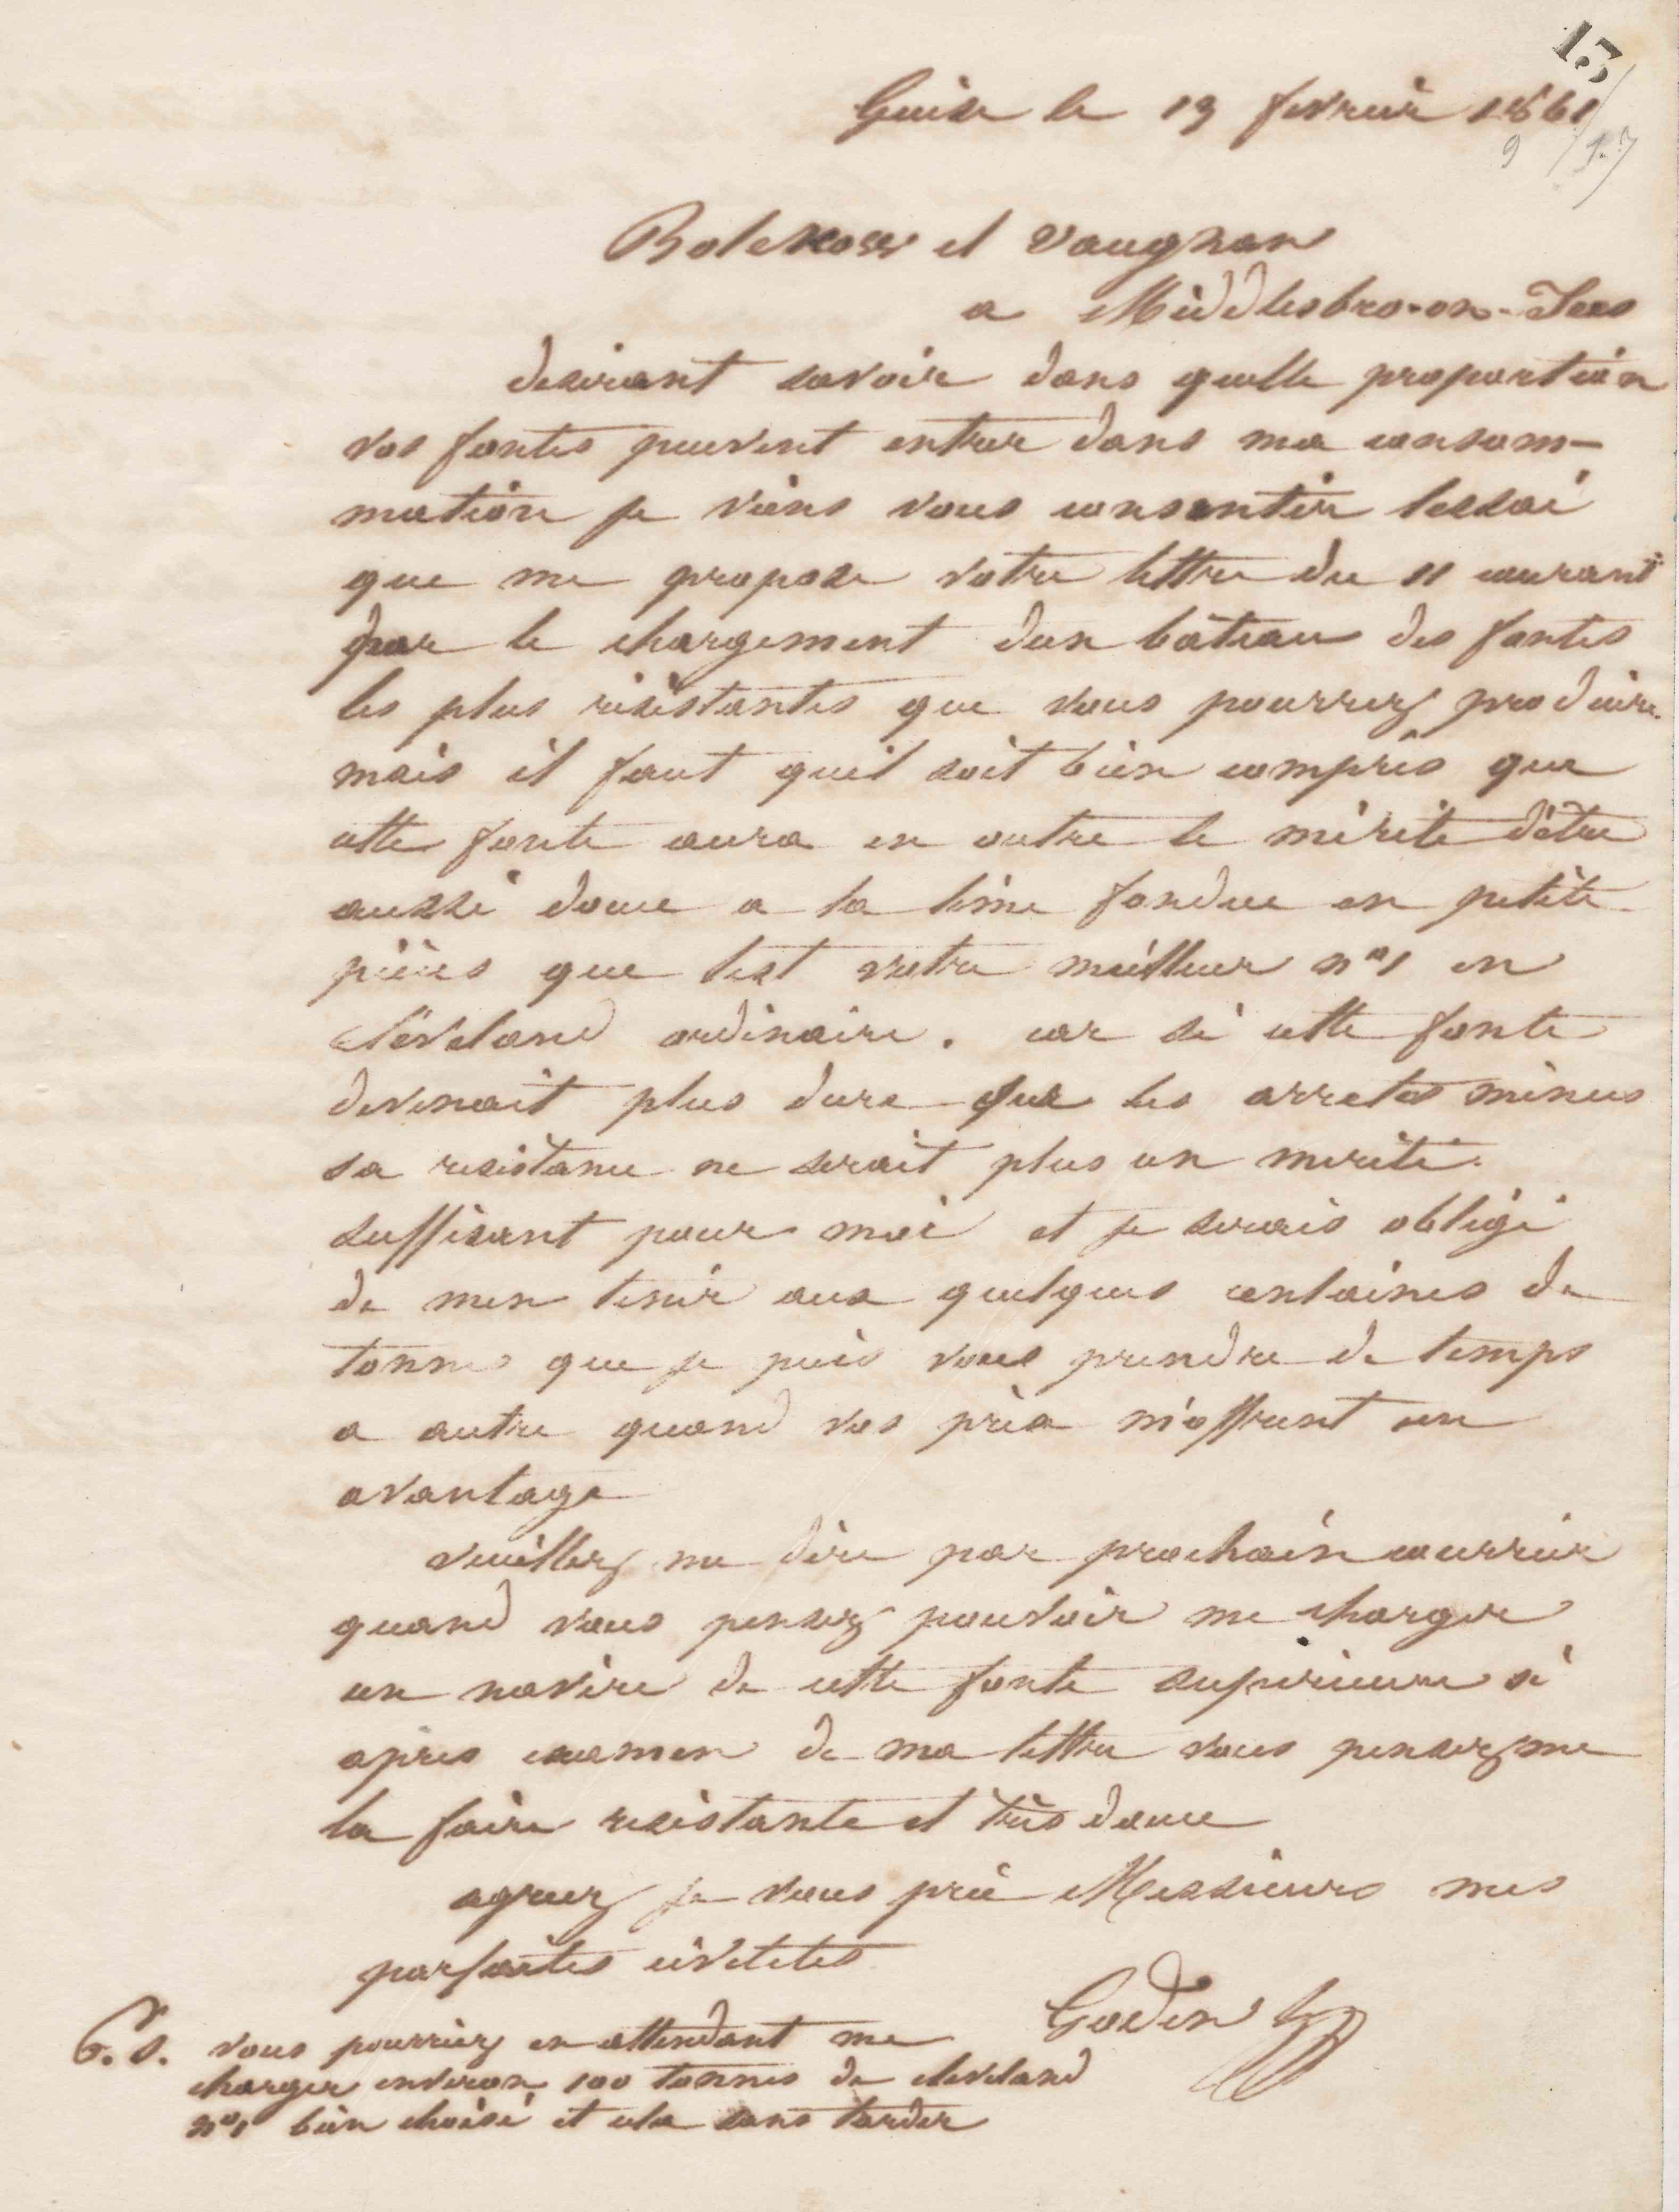 13
Guise le 19 fevrier 1861
Bolckow et Vaughan
a Middlesbro-on-Tees
desirant savoir dans quelle proportion
vos fontes peuvent entrer dans ma consom-
mation je viens vous consentir lessai
que me propose votre lettre du 11 courant
par le chargement dun bâteau des fontes
les plus résistantes que vous pourrez produire
mais il faut quil soit bien compris que
cette fonte aura en outre le mérite d'être
aussi douce a la lime fondue en petite
pièces que lest votre meilleur n° 1 en
Cléveland ordinaire. car si cette fonte
devenait plus dure que les arretes minces
sa resistance ne serait plus un merite
suffisant pour moi et je serais obligé
de men tenir aux quelques centaines de
tonnes que je puis vous prendre de temps
a autre quand vos prix m'offrent un
avantage
veuillez me dire par prochain courrier
quand vous pensez pouvoir me charger
un navire de cette fonte superieure si
apres examen de ma lettre vous pensez me
la faire resistante et très douce
agreez je vous prie Messieurs mes
parfaites civilités
Godin
P.S. vous pourriez en attendant me
charger environ 100 tonnes de cleveland
n° 1 bien choisi et cela sans tarder